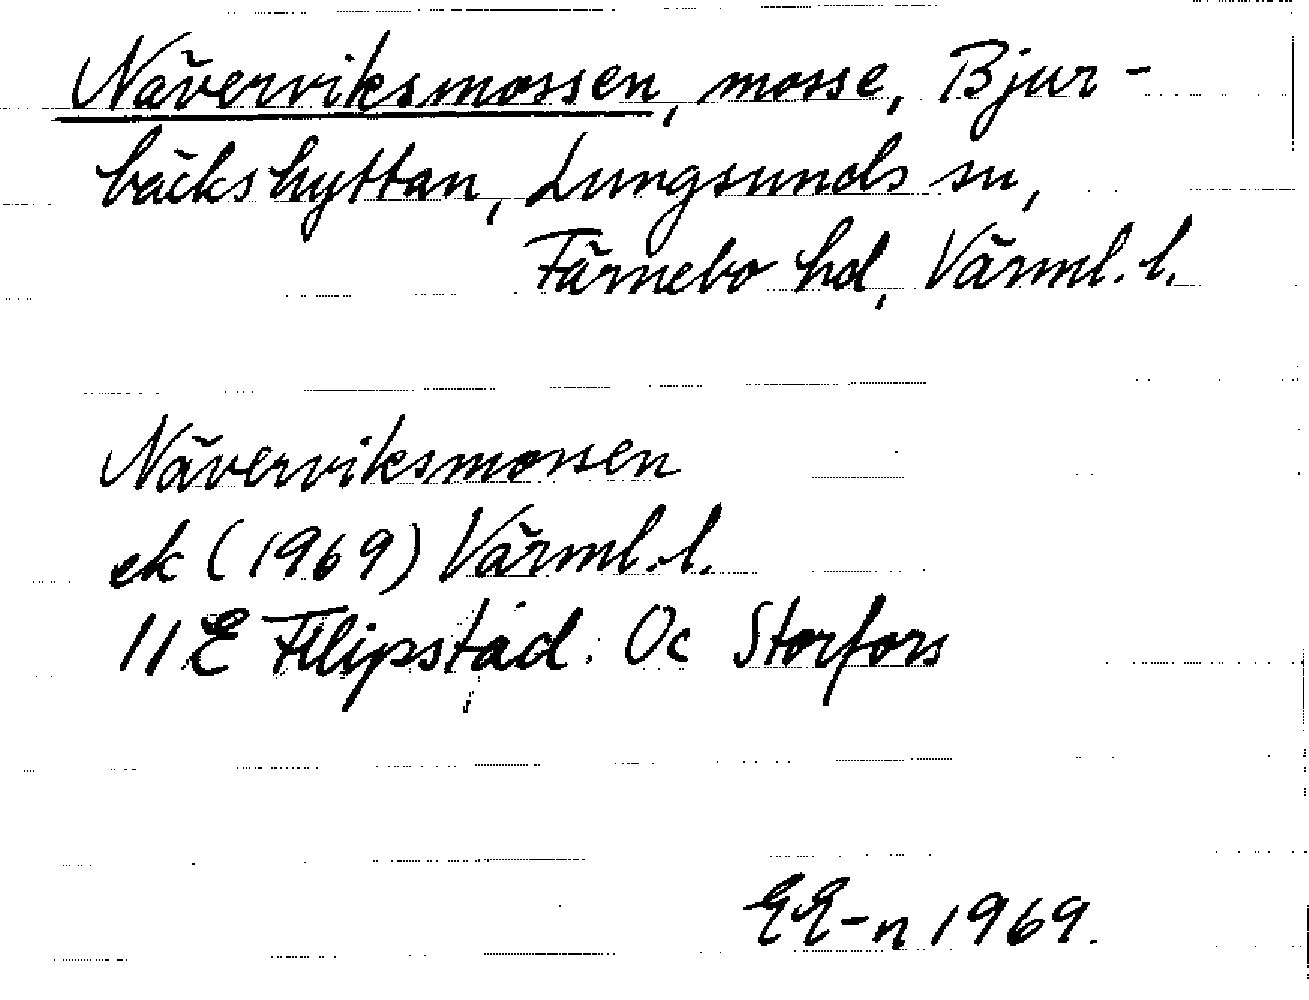 Näverviksmossen, mosse, Bjur-
bäckshyttan, Lungsunds sn,
Färnebo hd, Värml. l.
Näverviksmossen
ek (1969) Värml. l.
11 E Filipstad: Oc Storfors
EE-n 1969.